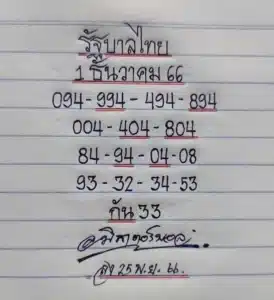 รัฐบาลไทย
1 ธันวาคม 66
094-994-494-894
004-404-804
84-94-04-08
93-32-34-53
กัน 33
25 พ.ย. 66.